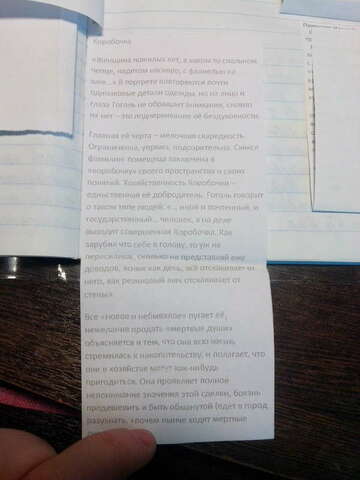 Коробочка
«Женщина пожилых лет, в каком-то спальном
чепце, надетом наскоро, с фланелью на
шее...» В портрете повторяются почти
одинаковые детали одежды, но на лицо и
глаза Гоголь не обращает внимания, словно
их нет – это подчеркивание её бездуховности.
Главная её черта – мелочная скаредность.
Ограниченна, упряма, подозрительна. Смысл
фамилии: помещица заключена в
«коробочку» своего пространства и своих
понятий. Хозяйственность Коробочки –
единственная её добродетель. Гоголь говорит
о таком типе людей: «... иной и почтенный, и
государственный... человек, а на деле
выходит совершенная Коробочка. Как
зарубил что себе в голову, то уж не
пересилишь, сколько ни представляй ему
доводов, ясных как день, всё отскакивает от
него, как резиновый мяч отскакивает от
стены»
Все «новое и небывалое» пугает её,
нежелание продать «мертвые души»
объясняется тем, что она всю жизнь
стремилась к накопительству, и полагает, что
они в хозяйстве могут как-нибудь
пригодиться. Она проявляет полное
непонимание значения этой сделки, боязнь
продешевить и быть обманутой (едет в город
разузнать, «почем нынче ходят мертвые